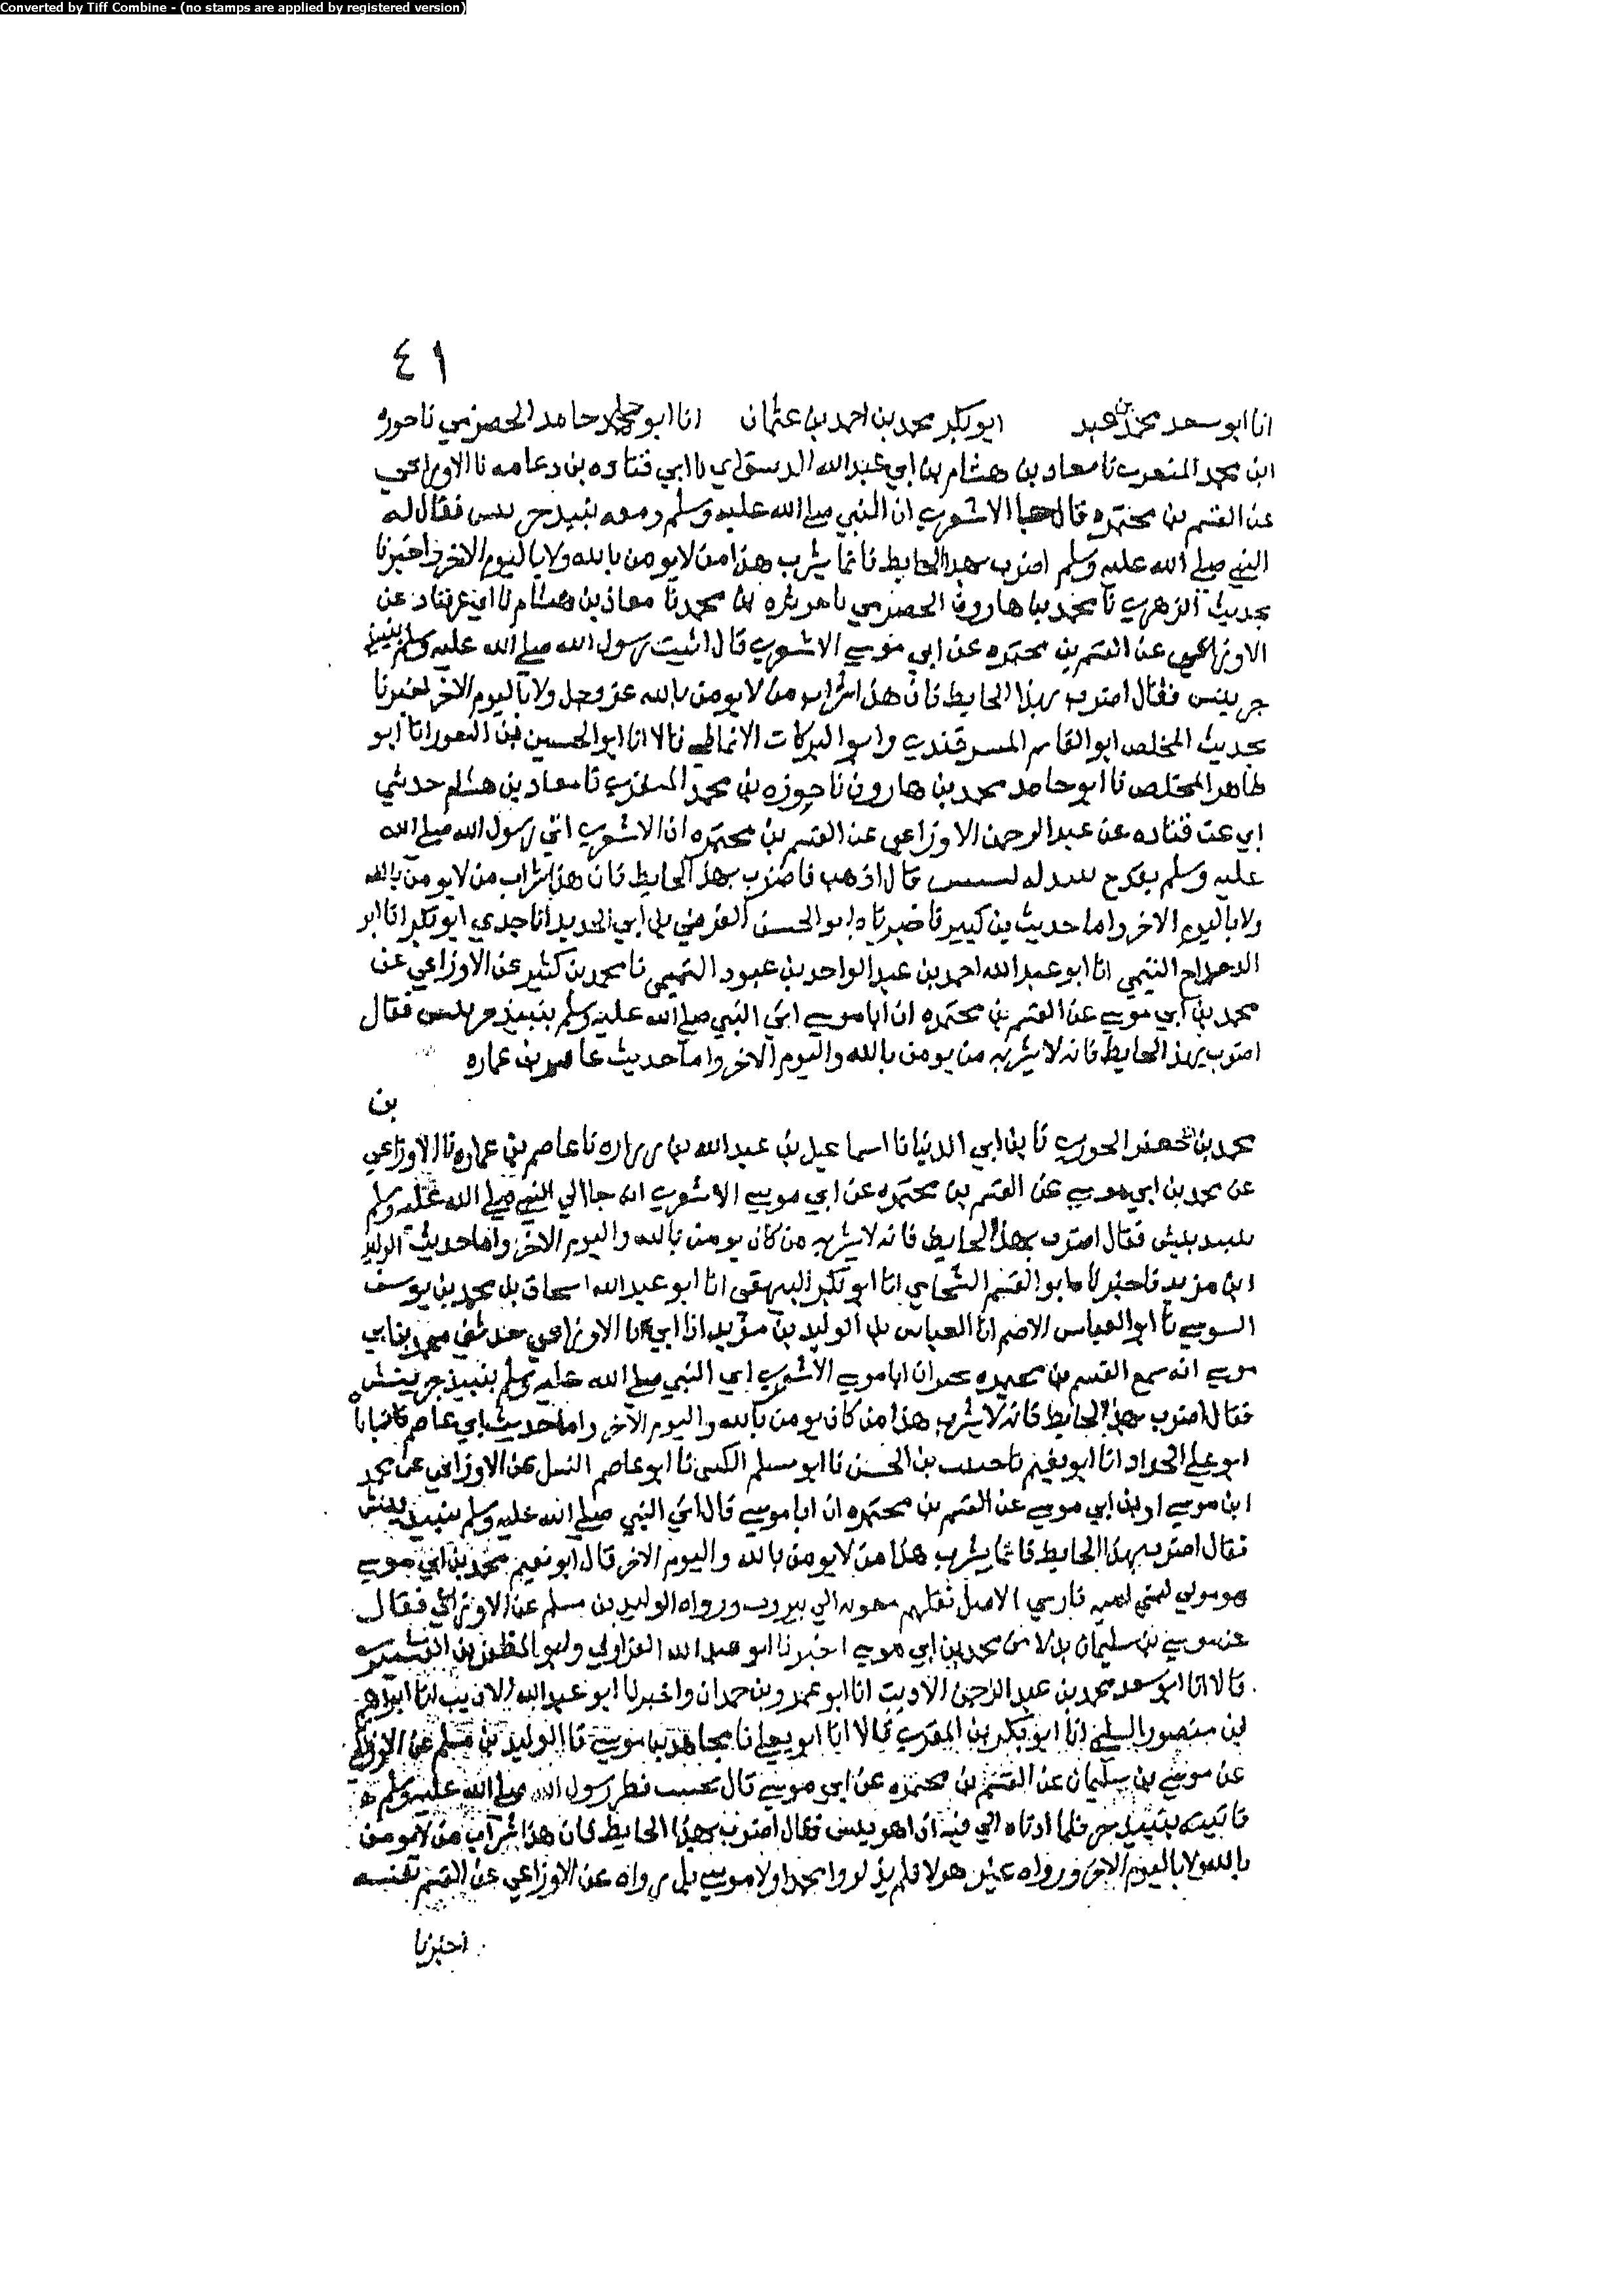 Converted by Tiff Combine - (no stamps are applied by registered version)
٤١
انا ابو سعد محمد بن عبد ابو بكر محمد بن احمد بن عثمان انا ابو حامد الحضرمي نا حوره
ابن محمد المنعرى نا معاد بن هشام بن ابي عبد الله الدستواي نا ابي قتاده بن دعامه نا الاوزاعي
عن القسم بن مخيمره قال الاشعري ان النبي صلى الله عليه وسلم ومعه بنبيذ جر فقال له
النبي صلى الله عليه وسلم اضرب بهذا الحايط فانما يشرب هذا من لا يومن بالله ولا باليوم الاخر واخبرنا
بحديث الزهري نا محمد بن هارون الحضرمي نا بن محمد نا معاذ بن هشام نا ابي عن قتاد عن
الاوزاعي عن القسم بن مخيمره عن ابي موسى الاشعري قال اتيت رسول الله صلى الله عليه وسلم بنبيذ
جر ينس فقال اضرب بهذا الحايط فان هذا شراب من لا يومن بالله عز وجل ولا باليوم الاخر اخبرنا
بحديث المخلص ابو القاسم السمرقندي وابو البركات الانماطي قالا انا ابو الحسين بن النقور انا ابو
طاهر المخلص نا ابو حامد محمد بن هارون نا حوزه بن محمد المنقرى نا معاد بن هشام حدثني
ابي عن قتاده عن عبد الرحمن الاوزاعي عن القسم بن مخيمره ان الاشعري اتى رسول الله صلى الله
عليه وسلم بقدح قال اذهب فاضرب بهذا الحايط فان هذا شراب من لا يومن بالله
ولا باليوم الاخر واما حديث بن كثير فاخبرناه ابو الحسن الفرضي بن ابي الحديد انا جدي ابو بكر انا ابو
الدحداح التيمي انا ابو عبد الله احمد بن عبد الواحد بن عبود التميمي نا محمد بن كثير عن الاوزاعي عن
محمد بن ابي موسى عن القسم بن مخيمره ان ابا موسى اتى النبي صلى الله عليه وسلم بنبيذ جر فقال
اضرب بهذ الحايط فانه لا يشربه من يومن بالله واليوم الاخر واما حديث عاصم بن عماره
بن
محمد بن جعفر الجوزي نا بن ابي الدنيا نا اسماعيل بن عبد الله بن زراره نا عاصم بن عماره نا الاوزاعي
عن محمد بن ابي موسى عن القسم بن مخيمره عن ابي موسى الاشعري انه جا الى النبي صلى الله عليه وسلم
فقال اضرب بهذا الحايط فانه لا يشربه من كان يومن بالله واليوم الاخر واما حديث الوليد
ابن مزيد فاخبرناه ابو القسم الشحامي انا ابو بكر البيهقي انا ابو عبد الله اسحاق بن محمد بن يوسف
السوسي نا ابو العباس الاصم انا العباس بن الوليد بن مزيد انا ابي نا الاوزاعي حدثني محمد بن ابي
موسى انه سمع القسم بن مخيمره ان ابا موسى الاشعري اتى النبي صلى الله عليه وسلم بنبيذ جر ينش
فقال اضرب بهذا الحايط فانه لا يشرب هذا من كان يومن بالله واليوم الاخر واما حديث ابي عاصم فانباناه
ابو علي الحداد انا ابو نعيم نا حبيب بن الحسن نا ابو مسلم الكشي نا ابو عاصم النبيل عن الاوزاعي عن محمد
ابن موسى او بن ابي موسى عن القسم بن مخيمره ان ابا موسى قال اتي النبي صلى الله عليه وسلم بنبيذ ينش
فقال اضرب بهذا الحايط فانما يشرب هذا من لا يومن بالله واليوم الاخر قال ابو نعيم محمد بن ابي موسى
هو مولى لبني اميه فارسي الاصل نقلهم معويه الى بيروت ورواه الوليد بن مسلم عن الاوزاعي فقال
عن موسى بن سليمان بدلا من محمد بن ابي موسى اخبرنا ابو عبد الله الفراوي وابو المظفر بن القشيري
قالا انا ابو سعد محمد بن عبد الرحمن الاديب انا ابو عمرو بن حمدان واخبرنا ابو عبد الله الاديب انا ابراهيم
بن منصور السلمي انا ابو بكر بن المقري قالا انا ابو يعلى نا مجاهد بن موسى نا الوليد بن مسلم عن الاوزاعي
عن موسى بن سليمان عن القسم بن مخيمره عن ابي موسى قال تحينت فطر رسول الله صلى الله عليه وسلم
فاتيته بنبيذ جر فلما ادناه الى فيه اذا هو ينش فقال اضرب بهذا الحايط فان هذا شراب من لا يومن
بالله ولا باليوم الاخر ورواه غير هولا فلم يذكروا محمدا ولا موسى بل رواه عن الاوزاعي عن القسم نفسه
اخبرنا